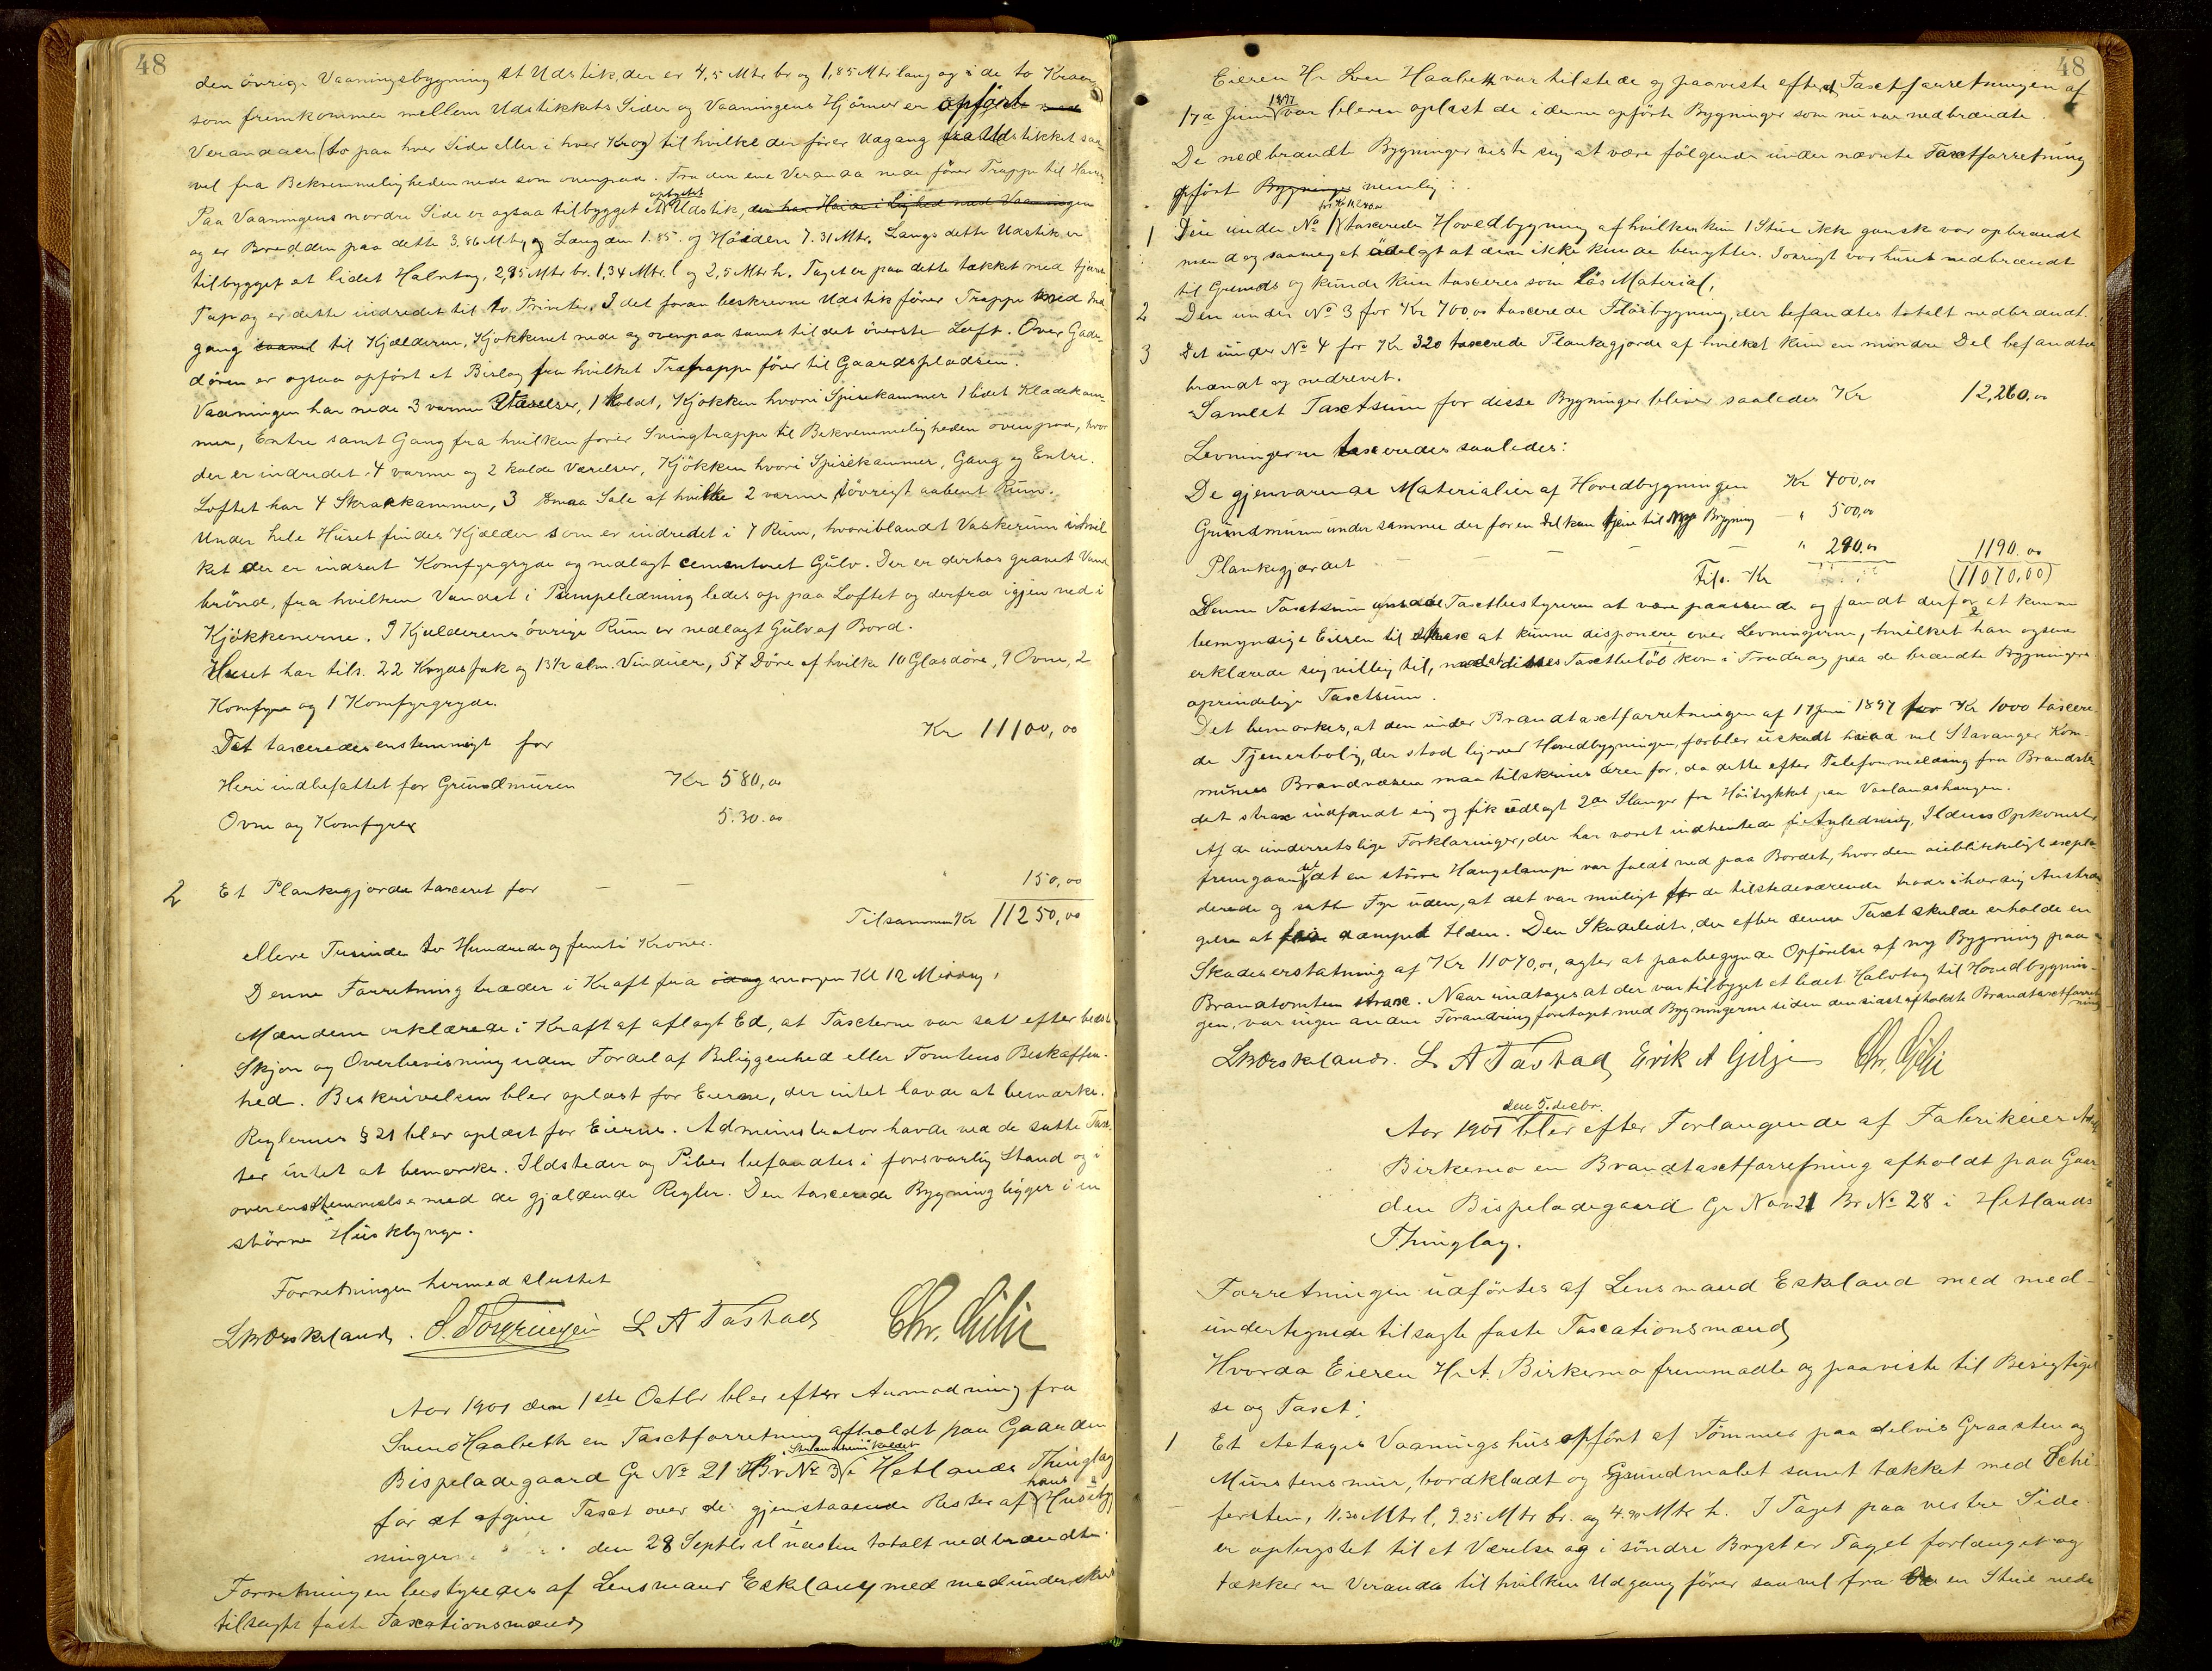 48
den övrige Vaaningsbygning et Udstik, der er 4,5 Mtr br og 1,85 Mtr lang og i de to Kroer
som fremkommer mellem Udstikkets Sider og Vaaningens Hjörner er opfört med
Verandaer (to paa hver Side eller i hver Krog) til hvilke der förer Udgang fra Udstikket saa-
vel fra Bekvemmeligheden nede som ovenpaa. Fra den ene Veranda nede förer Trappe til Haven
Paa Vaaningens nordre Side er ogsaa tilbygget et opbygget Udstik, der har Höide i lighed med Vaaningen
og er Bredden paa dette 3.86 Mtr og Længden 1.85. og Höiden 7.31 Mtr. Langs dette Udstik er
tilbygget et lidet Halvtag, 2,85 Mtr br. 1,34 Mtr. l og 2,5 Mtr h. Taget er paa dette tækket med tjæret
Pap og er dette indredet til to Priveter. I det foran beskrevne Udstik förer Trappe med Ind
gang saavel til Kjælderen, Kjökkenet nede og ovenpaa samt til det överste Loft. Over Gade-
dören er ogsaa opfört et Bislag fra hvilket Trætrappe förer til Gaardspladsen.
Vaaningen har nede 3 varme Værelser, 1 koldt, Kjökken hvori Spisekammer 1 lidet Klædekam-
mer, Entre samt Gang fra hvilken förer Svingtrappe til Bekvemmeligheden ovenpaa, hvor
der er indredet 4 varme og 2 kolde Værelser, Kjökken hvori Spisekammer, Gang og Entre.
Loftet har 4 Skraakkammer, 3 smaa Sale af hvilke 2 varme, iövrigt aabent Rum.
Under hele Huset findes Kjælder som er indredet i 7 Rum, hvoriblandt Vaskerum i hvil
ket der er indsat Komfyrgryde og nedlagt cementeret Gulv. Der er derhos gravet Vand
brönd, fra hvilken Vandet i Pumpeledning ledes op paa Loftet og derfra igjen ned i
Kjökkenerne. I Kjælderens övrige Rum er nedlagt Gulv af Bord.
Huset har tils. 22 Krydsfak og 13 1/2 alm. Vinduer, 57 Döre af hvilke 10 Glasdöre, 9 Ovne, 2
Komfyre og 1 Komfyrgryde.
Det taxeredes enstemmigt for Kr 11100,00
Heri indbefattet for Grundmuren Kr 580,00
Ovne og Komfyrer 530.00
2 Et Plankegjærde taxeret for — — 150,00
Tilsammen Kr 11250,00
elleve Tusinde to Hundrede og femti Kroner.
Denne Forretning træder i Kraft fra idag morgen Kl 12 Middag,
Mændene erklærede i Kraft af aflagt Ed, at Taxterne var sat efter bedste
Skjön og Overbevisning uden Fordel af Beliggenhed eller Tomtens Beskaffen-
hed. Beskrivelsen blev oplæst for Eierne, der intet havde at bemærke.
Reglernes § 21 blev oplæst for Eierne. Administrator havde ved de satte Tax-
ter intet at bemærke. Ildsteder og Piber befandtes i forsvarlig Stand og i
overensstemmelse med de gjældende Regler. Den taxerede Bygning ligger i en
större Husklynge.
Forretningen hermed sluttet
L A Tastad Chr. Gilje
Aar 1901 den 1ste Octbr blev efter Anmodning fra
Svend Haabeth en Taxtforretning afholdt paa Gaarden
Bispeladegaard Gr № 21 Br № 3 kaldet i Hetlands Thinglag
for at afgive Taxt over de gjenstaaende Rester af hans Huseby
ninger den 28 Septbr næsten totalt nedbrændte.
Forretningen bestyredes af Lensmand Eskeland med medunderskr
tilsagte faste Taxationsmænd
48
Eieren Hr Sven Haabeth var tilstede og paaviste efter at Taxtforretningen af
17de Juni 1897 var bleven oplæst de i denne opförte Bygninger som nu var nedbrændte.
De nedbrændte Bygninger viste sig at være fölgende under nævnte Taxtforretning
opfört Bygninger nemlig:
1 Den under № 1 for Kr 11240,00 taxerede Hovedbygning af hvilken kun 1 Stue ikke ganske var opbrændt
men dog saameget ödelagt at den ikke kunde benyttes. Iövrigt var huset nedbrændt
til Grunds og kunde kun taxeres som lös Material,
2 Den under № 3 for Kr 700,00 taxerede Flöibygning, der befandtes totalt nedbrændt.
3 Det under № 4 for Kr 320 taxerede Plankegjærde af hvilket kun en mindre Del befandtes
brændt og nedrevet.
Samlet Taxtsum for disse Bygninger bliver saaledes Kr 12,260,00
Levningerne taxeredes saaledes:
De gjenværende Materialier af Hovedbygningen Kr 400,00
Grundmuren under samme der for en Del kan tjene til Ny Bygning — " 500,00
Plankegjærdet — — — — " 290.00 1190.00
Tils. Kr (11070,00)
Denne Taxtsum ansaa Taxtbestyreren at være passende og fandt derfor at kunne
bemyndige Eieren til strax at kunne disponere over Levningerne, hvilket han ogsaa
erklærede sig villig til, mod at disses Taxtbelöb kom i Fradrag paa de brændte Bygningers
oprindelige Taxtsum.
Det bemærkes, at den under Brandtaxtforretningen af 17 Juni 1897 for Kr 1000 taxere
de Tjenerbolig, der stod ligeved Hovedbygningen, forblev uskadt hvad vel Stavanger Kom-
munes Brandvæsen maa tilskrives æren for, da dette efter Telefonmelding fra Brandste
det strax indfandt sig og fik udlagt 2de Slanger fra Höitrykket paa Vaalandshaugen.
Af de underretslige Forklaringer, der har været indhentede i Anledning, Ildens Opkomst
fremgaar det at en större Hængelampe var faldt ned paa Bordet, hvor den øieblikkeligt explo
derede og satte Fyr uden, at det var muligt for de tilstedeværende trods ihærdig Anstræn
gelse at faa dæmpet Ilden. Den Skadelidte, der efter denne Taxt skulde erholde en
Skadeserstatning af Kr 11070,00, agter at paabegynde Opförelse af ny Bygning paa
Brandtomten strax. Naar undtages at der var tilbygget et lidet Halvtag til Hovedbygnin-
gen, var ingen anden Forandring foretaget med Bygningerne siden den sidst afholdte Brandtaxtforret
ning
L A Tastad Erik A Gilje Chr. Gilje
Aar 1901 den 5. decbr. blev efter Forlangende af Fabrikeier
Birkemo en Brandtaxtforretning afholdt paa Gaar
den Bispeladegaard Gr No 21 Br № 28 i Hetlands
Thinglag.
Forretningen udförtes af Lensmand Eskeland med med-
undertegnede tilsagte faste Taxationsmænd
Hvorda Eieren Hr A. Birkemo fremmödte og paaviste til Besigtigel
se og Taxt:
1 Et Vaaningshus opfört af Tömmer paa delvis Graasten og
Murstensmur, bordklædt og Grundmalet samt tækket med Schi
fersten, 11.30 Mtr l, 9.25 Mtr br. og 4.90 Mtr h. I Taget paa vestre Side
er opbygstet til et Værelse og i söndre Bryst er Taget forlænget og
tækker en Veranda til hvilken Udgang förer saavel fra en Stue nede